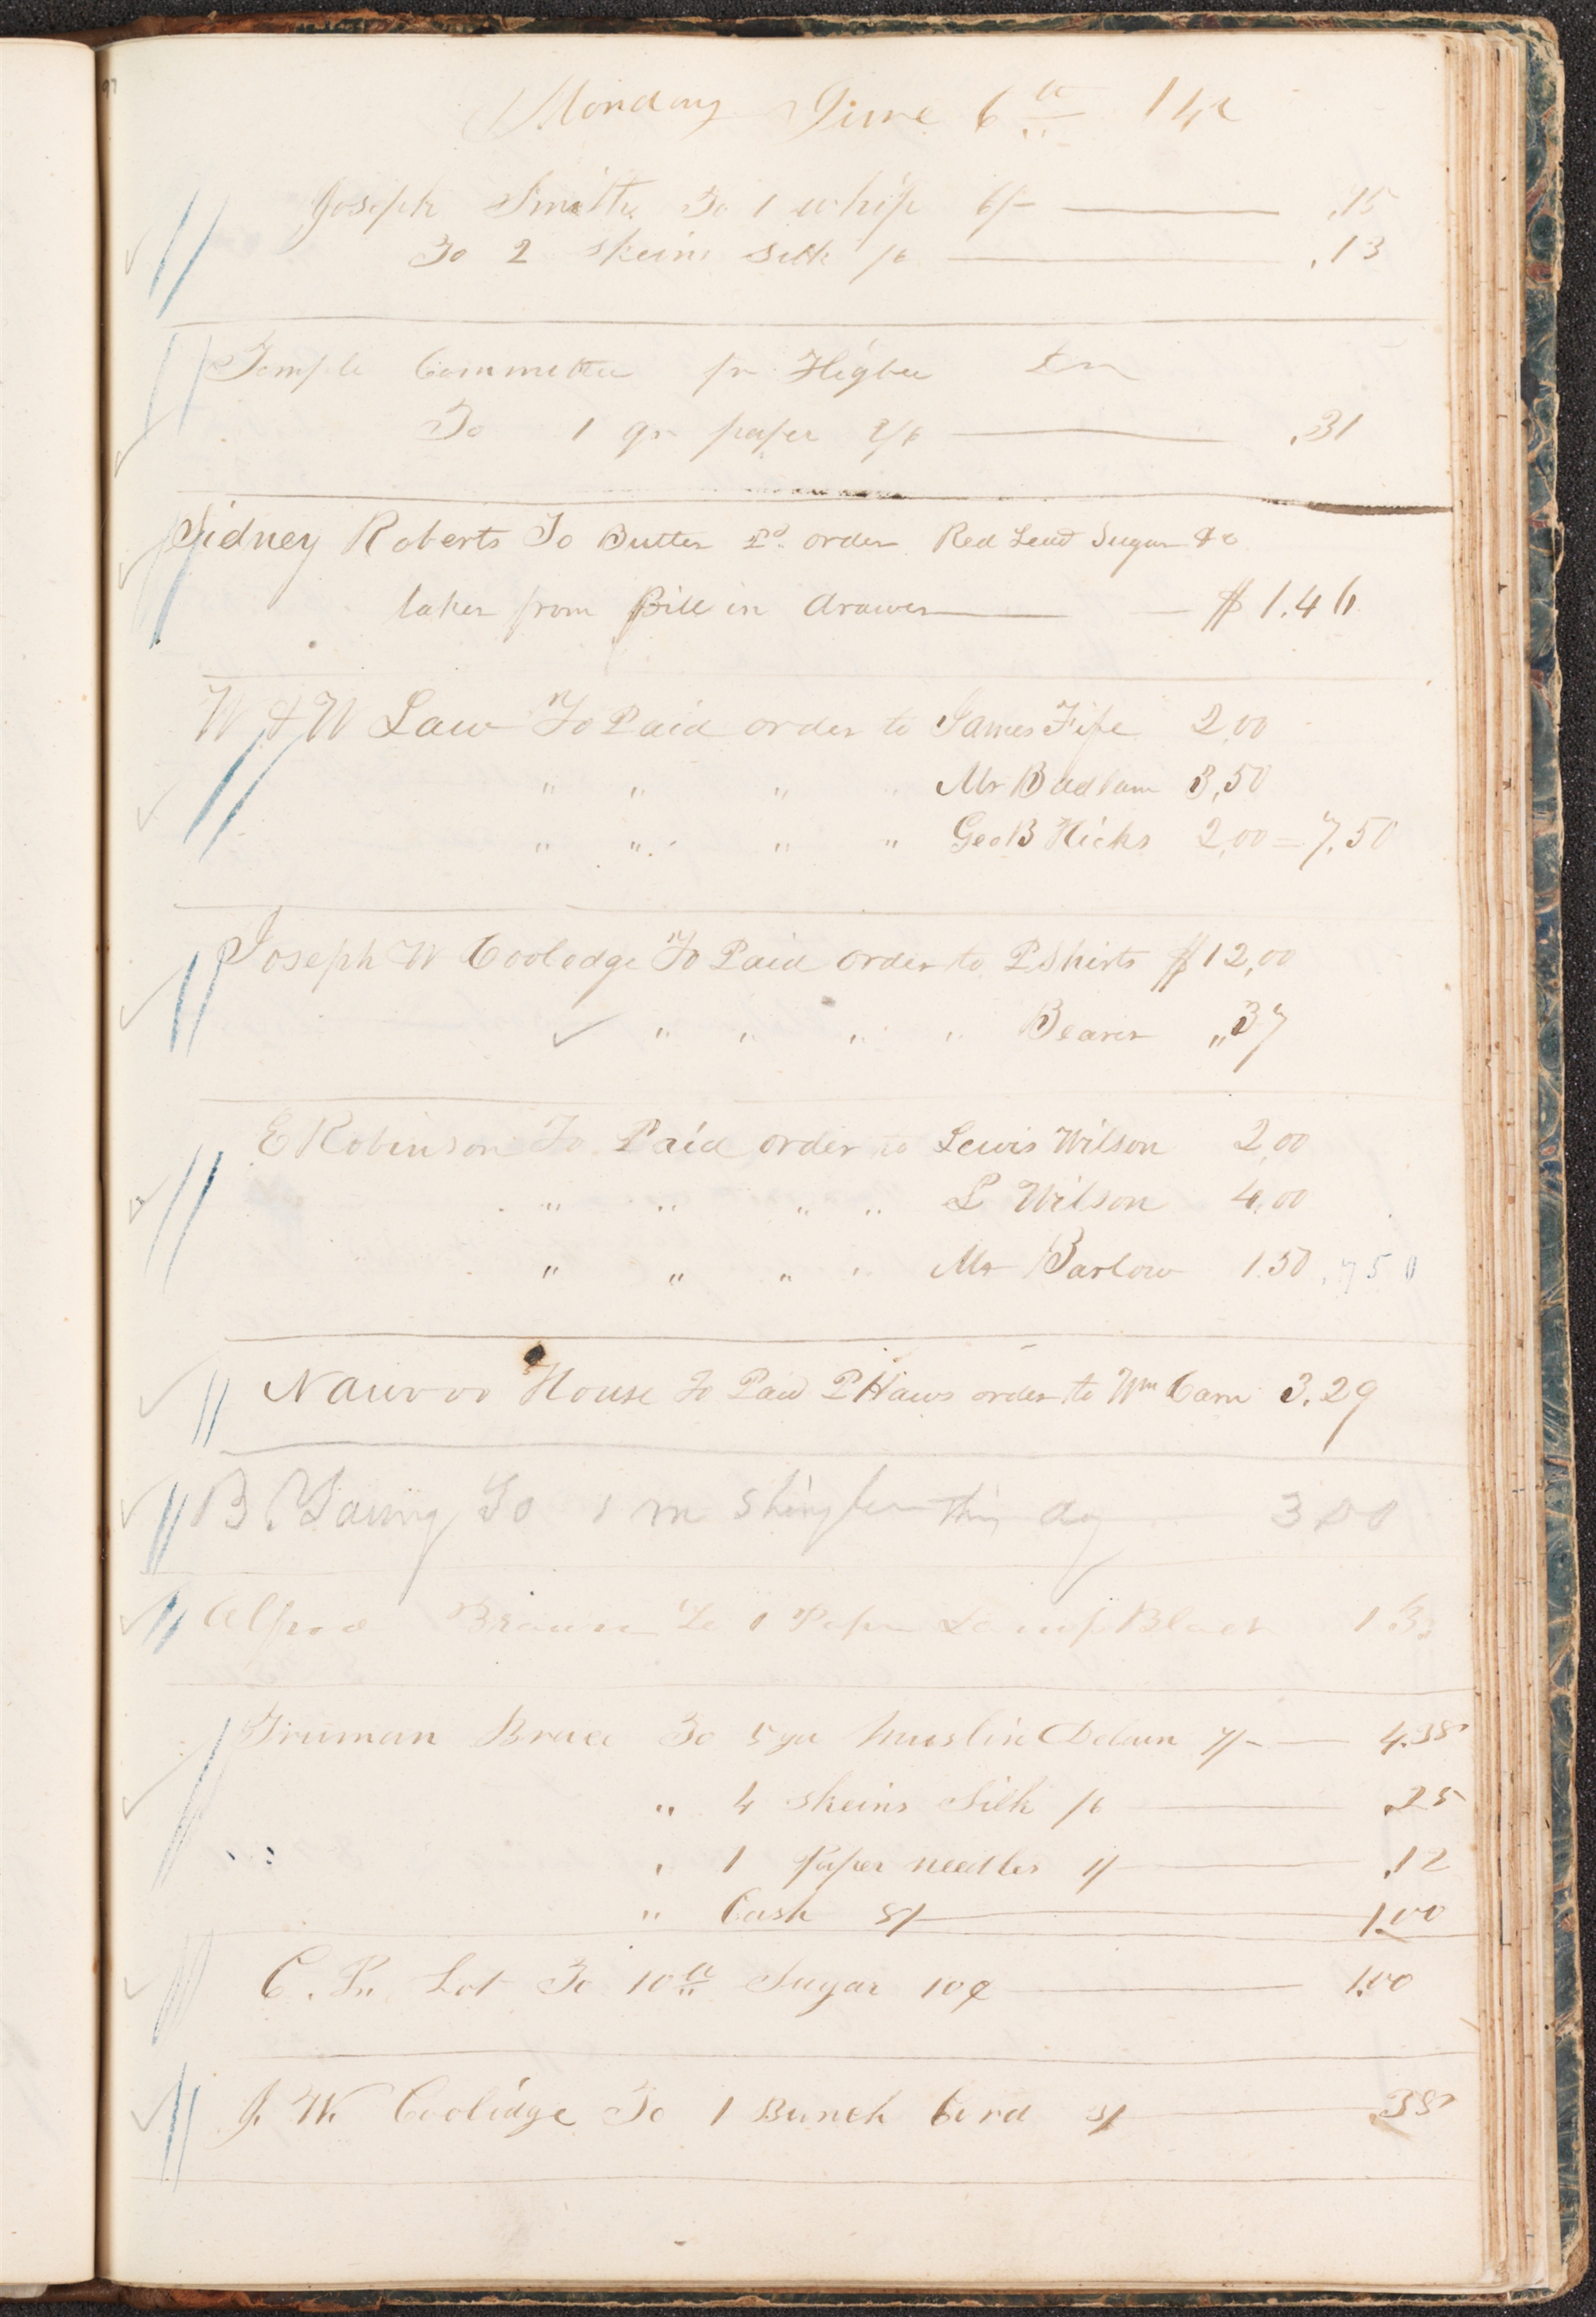 Monday June 6th 142
Joseph Smith To 1 whip 6/- .75
To 2 skeins silk /6 .13
Temple Committee pr Higbee Dr
To 1 qr paper 2/6 .31
Sidney Roberts To Butter Pd. order Red Lead Sugar &c
taken from Bill in drawer $1.46
W & W Law To Paid order to James Fife 2,00
" " " " Mr Badlam 3,50
" " " " Geo B Hicks 2,00 = 7,50
Joseph W Coolodge To Paid order to P Shirts $12,00
" " " " Bearer " 37
E Robinson To Paid order to Lewis Wilson 2,00
" " " " L Wilson 4,00
" " " " Mr Barlow 1.50 ,750
Nauvoo House To Paid P Haws order to Wm 3.29
B. Young To 1 m Shingles this day 3,00
Alfred Brown To 1 Paper Lamp Black 13
Truman Brace To 5 yd Muslin Delain 7/- 4.38
" 4 skeins Silk /6 .25
" 1 Paper needles 1/ .12
" Cash 8/ 1.00
C. P. Lot To 10 lb Sugar 10¢ 1.00
J. W. Coolidge To 1 Bunch Cord 3/ .38